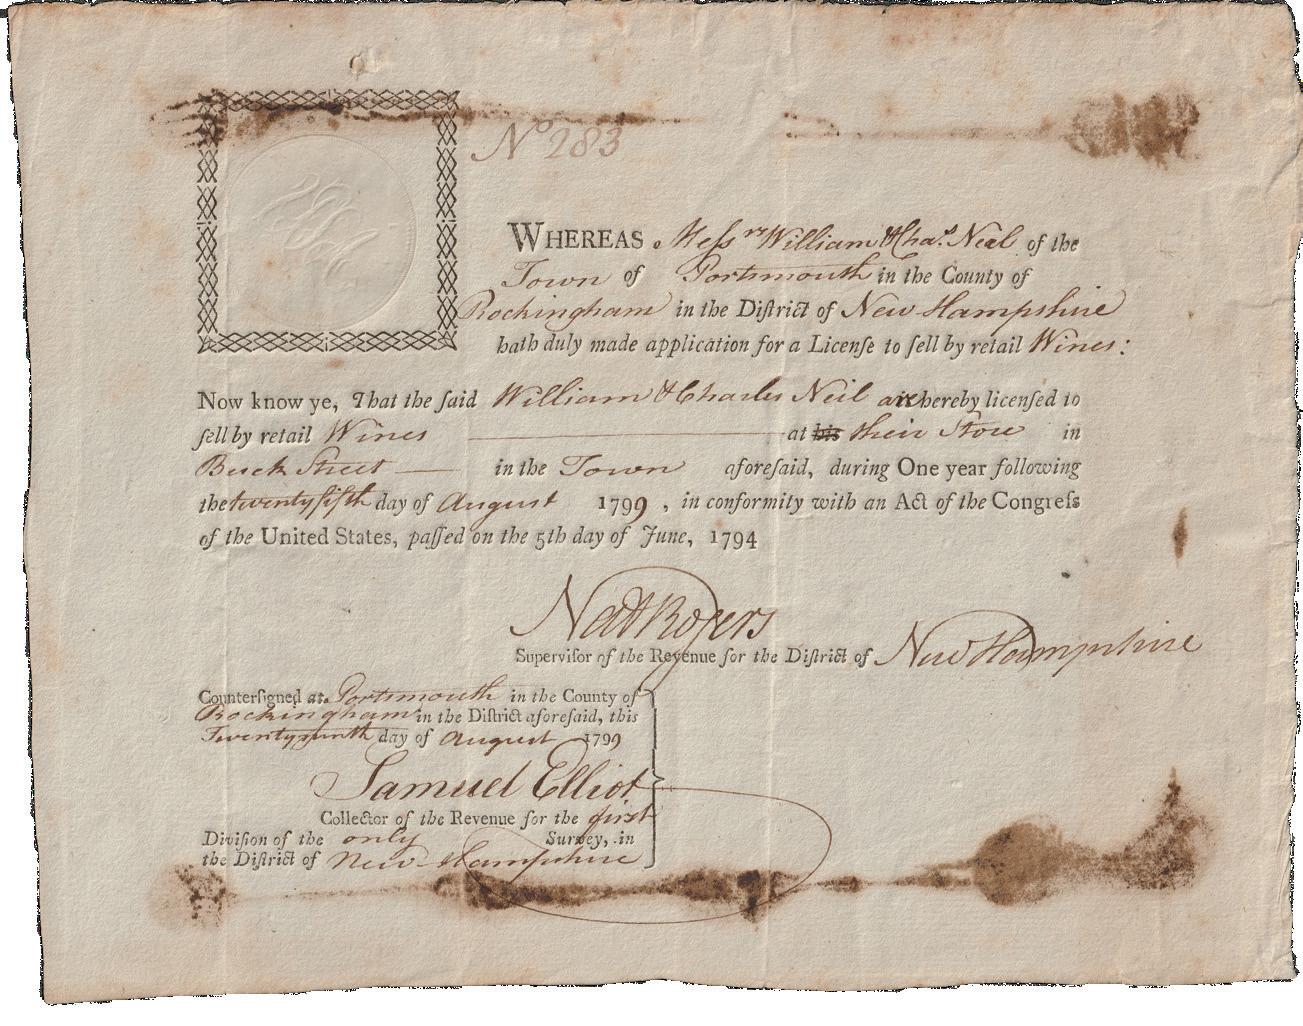 No 283
WHEREAS Messrs William & Chas. Neal of the
Town of Portsmouth in the County of
Rockingham in the Diſtrict of New Hampshire
hath duly made application for a Licenſe to ſell by retail Wines:
Now know ye, That the ſaid William & Charles Neil are hereby licenſed to
ſell by retail Wines at his their Store in
Buck Street in the Town aforeſaid, during One year following
the twenty fifth day of August 1799, in conformity with an Act of the Congreſs
of the United States, paſſed on the 5th day of June, 1794
Natl Rogers
Superviſor of the Revenue for the Diſtrict of New Hampshire
Counterſigned at Portsmouth in the County of
Rockingham in the Diſtrict aforeſaid, this
Twenty ninth day of August 1799
Samuel Elliot
Collector of the Revenue for the first
Diviſion of the only Survey, in
the Diſtrict of New-Hampshire